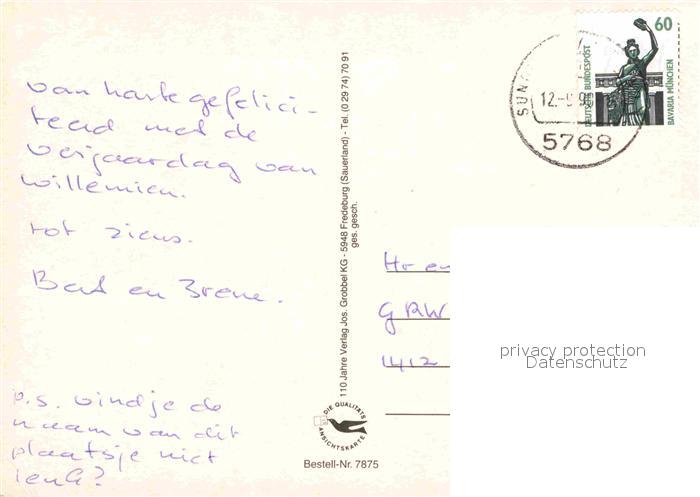 van harte gefelici-
teerd met de
verjaardag van
willemien.
tot ziens.
Bert en Irene.
p.s. vind je de
naam van dit
plaatsje niet
leuk?
110 Jahre Verlag Jos. Grobbel KG - 5948 Fredeburg (Sauerland) - Tel. (0 29 74) 70 91
ges. gesch.
DIE QUALITÄTS
ANSICHTSKARTE
Bestell-Nr. 7875
60
DEUTSCHE BUNDESPOST
BAVARIA MÜNCHEN
SUN
12.
5768
Hr en
1412
privacy protection
Datenschutz